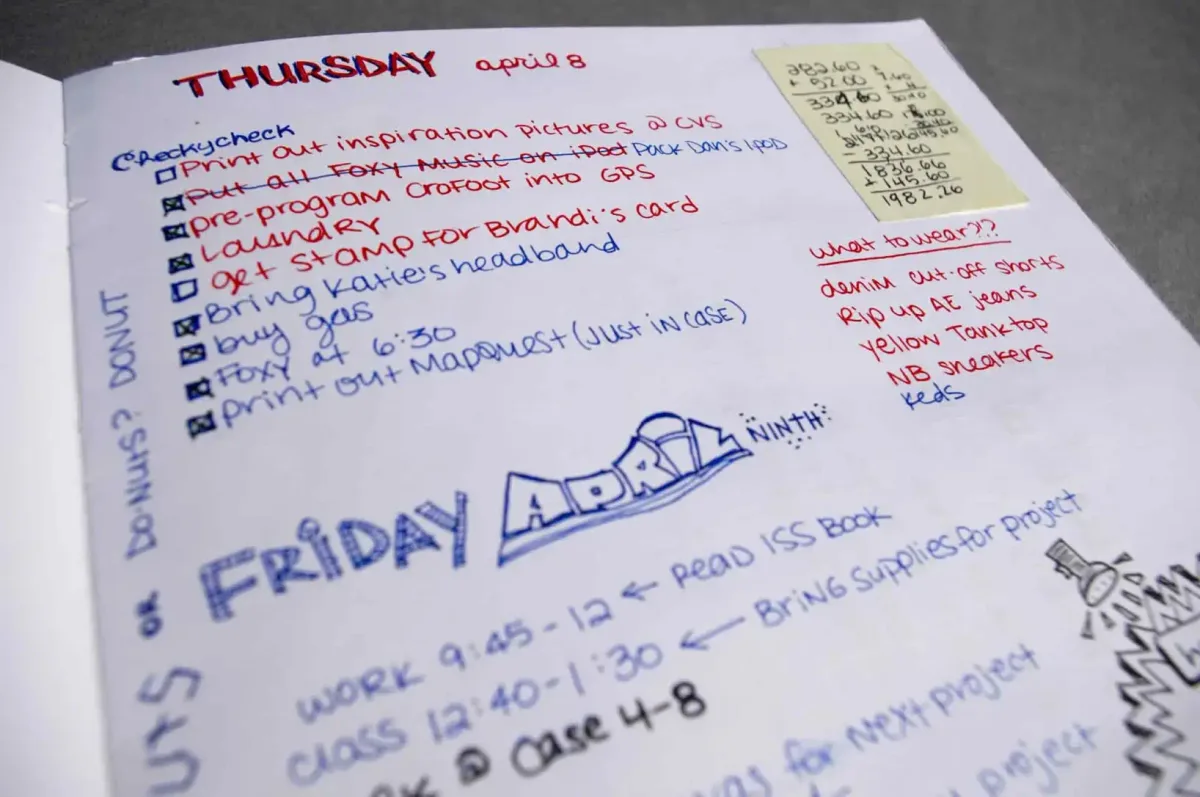 THURSDAY april 8
Checkycheck
Print out inspiration pictures @ CVS
Put all Foxy Music on iPod Pack Dan's ipod
pre-program Crofoot into GPS
Laundry
get stamp for Brandi's card
Bring Katie's headband
buy gas
Foxy at 6:30
print out MapQuest (just in case)
282.60
+ 52.00
334.60
334.60
- 334.60
1836.66
+ 145.60
1982.26
what to wear??
denim cut-off shorts
Rip up AE jeans
yellow Tanktop
NB sneakers
Keds
DO-NUTS? DONUT
OR
UTS
FRIDAY APRIL NINTH
WORK 9:45-12 ← READ ISS BOOK
class 12:40-1:30 ← BRING supplies for project
@ Case 4-8
for Next project
project